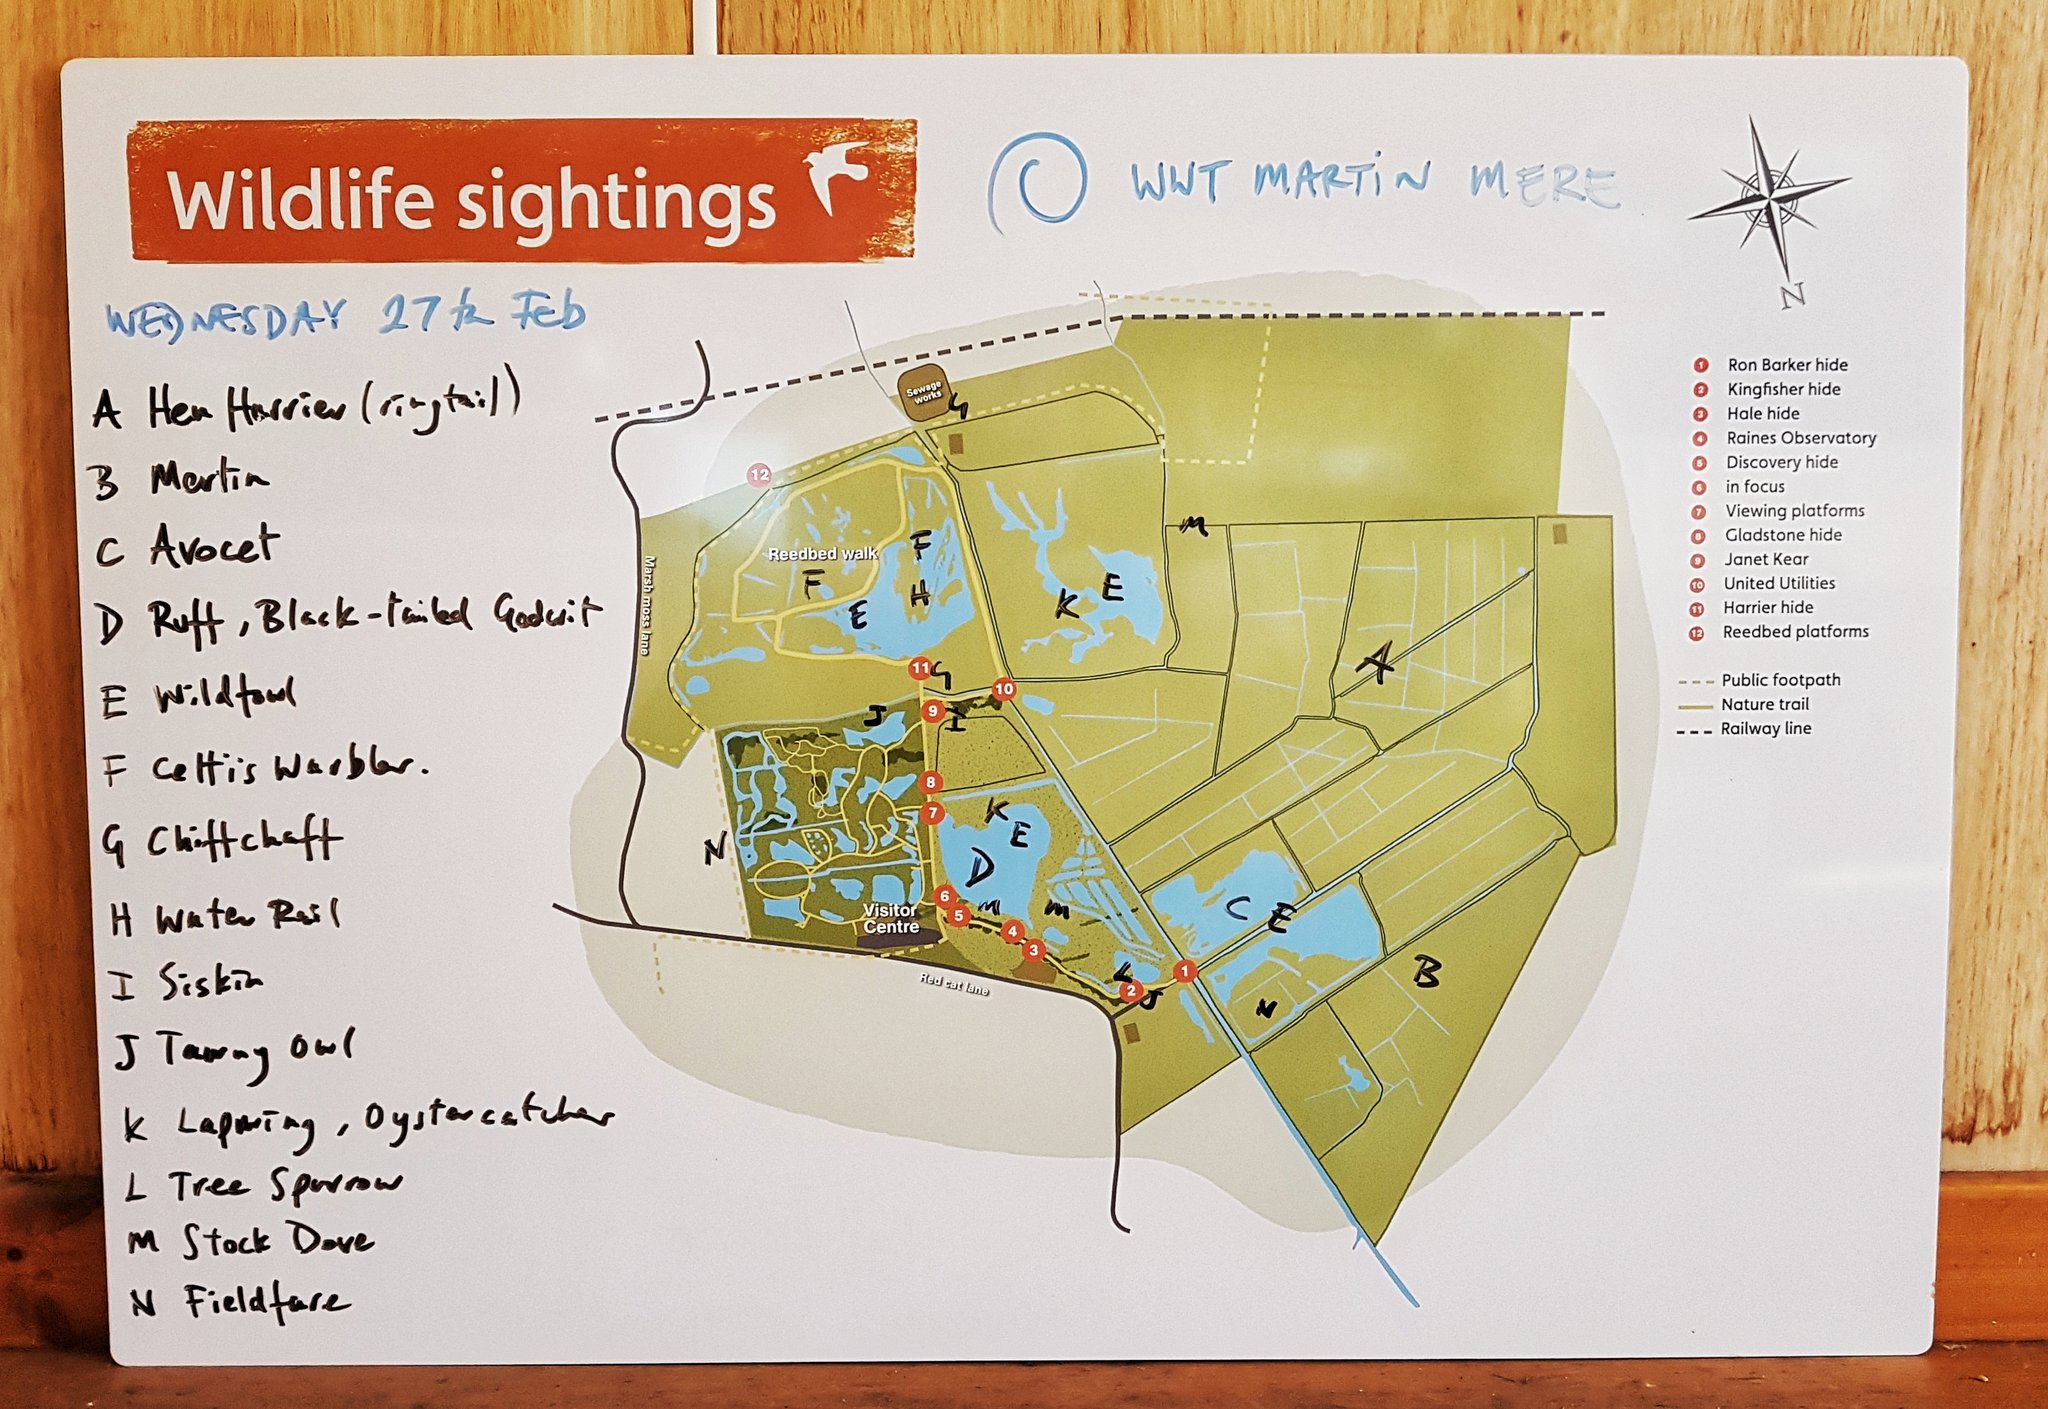 Wildlife sightings
@ WWT MARTIN MERE
WEDNESDAY 27th Feb
A Hen Harrier (ringtail)
B Merlin
C Avocet
D Ruff, Black-tailed Godwit
E Wildfowl
F Cettis Warbler.
G Chiffchaff
H Water Rail
I Siskin
J Tawny Owl
K Lapwing, Oystercatcher
L Tree Sparrow
M Stock Dove
N Fieldfare
N
1 Ron Barker hide
2 Kingfisher hide
3 Hale hide
4 Raines Observatory
5 Discovery hide
6 in focus
7 Viewing platforms
8 Gladstone hide
9 Janet Kear
10 United Utilities
11 Harrier hide
12 Reedbed platforms
Public footpath
Nature trail
Railway line
Sewage
works
G
12
M
F
Reedbed walk
F
H
E
K
E
Marsh moss lane
A
11
G
10
J
9
I
8
7
K
E
N
D
6
5
M
M
Visitor
Centre
4
3
C
E
L
1
B
2
J
N
Red cat lane